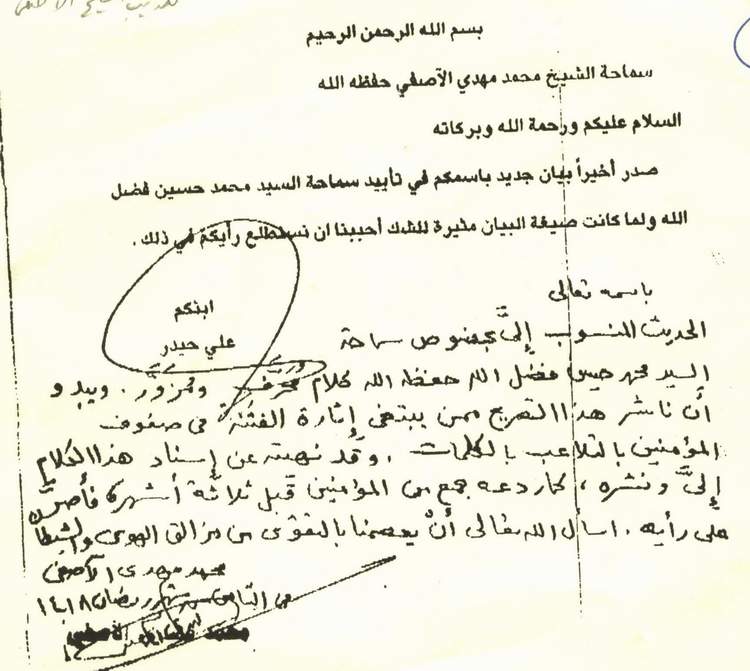 بسم الله الرحمن الرحيم
سماحة الشيخ محمد مهدي الآصفي حفظه الله
السلام عليكم ورحمة الله وبركاته
صدر أخيراً بيان جديد باسمكم في تأييد سماحة السيد محمد حسين فضل
الله ولما كانت صيغة البيان مثيرة للشك أحببنا ان نستطلع رأيكم في ذلك.
ابنكم
علي حيدر
باسمه تعالى
الحديث المنسوب إليَّ بخصوص سماحة
السيد محمد حسين فضل الله حفظه الله كلام محرَّف ومُزوَّر. ويبدو
أنَّ ناشر هذا التصريح ممن يبتغي إثارة الفتنة في صفوف
المؤمنين بالتلاعب بالكلمات. وقد نهيته عن إسناد هذا الكلام
إليَّ ونشره، كما ردعه جمع من المؤمنين قبل ثلاثة أشهر، فأصرَّ
على رأيه. اسأل الله تعالى أنْ يعصمنا بالتقوى من مزالق الهوى والشيطان
محمد مهدي الآصفي
في الثامن من شهر رمضان ١٤١٨